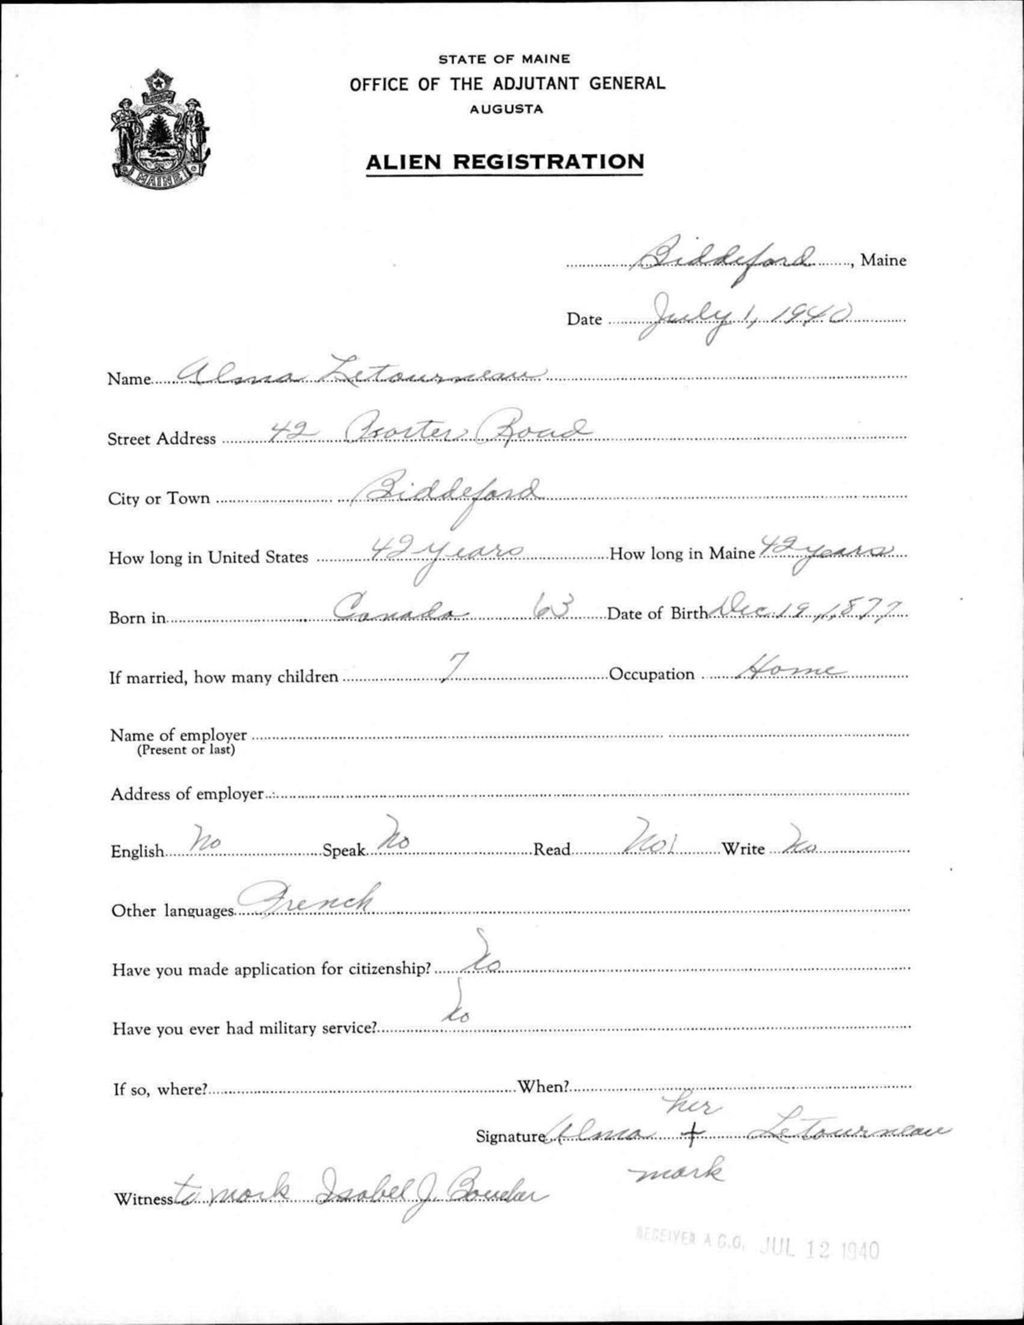 STATE OF MAINE
OFFICE OF THE ADJUTANT GENERAL
AUGUSTA
ALIEN REGISTRATION
MAINE
Biddeford, Maine
Date July 1, 1940
Name Alma Letourneau
Street Address 42 Road
City or Town Biddeford
How long in United States 42 years How long in Maine 42 years
Born in Canada 63 Date of Birth Dec 19, 1877
If married, how many children 7 Occupation Home
Name of employer
(Present or last)
Address of employer
English No Speak No Read No Write No
Other languages French
Have you made application for citizenship? No
Have you ever had military service? No
If so, where? When?
her
Signature Alma + Letourneau
mark
Witness to mark Isabel J.
RECEIVED A.G.O. JUL 12 1940